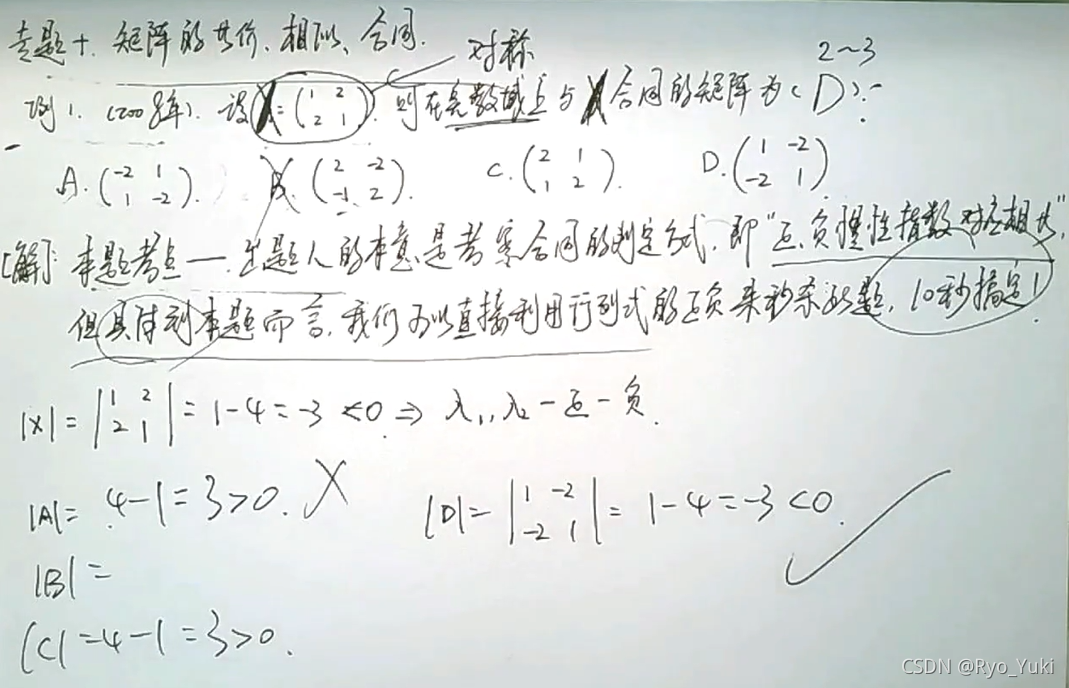 专题十. 矩阵的等价、相似、合同.
对称
2~3
例1. (2008年). 设X=(1 2 2 1). 则在实数域上与X合同的矩阵为(D).
A.(-2 1 1 -2). B.(2 -2 -1 2). C.(2 1 1 2). D.(1 -2 -2 1)
[解]: 本题考点一. 出题人的本意是考察合同的判定方式, 即"正、负惯性指数对应相等",
但具体到本题而言, 我们可以直接利用行列式的正负来秒杀此题, 10秒搞定!
|X|=|1 2 2 1|=1-4=-3<0 ⇒ λ₁, λ₂一正一负.
|A|= 4-1=3>0. X
|D|=|1 -2 -2 1|=1-4=-3<0.
|B|=
|C|=4-1=3>0.
CSDN @Ryo_Yuki